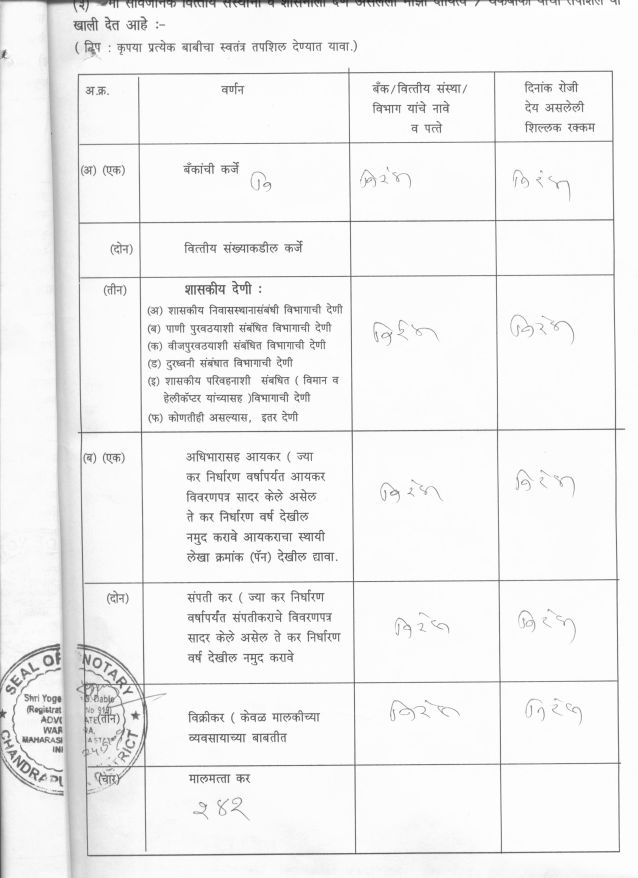 (२) मी सार्वजनिक वित्तीय संस्थांना व शासनाला देणे असलेली माझी दायित्वे / थकबाकी यांचा तपशिल मी
खाली देत आहे :-
( टिप : कृपया प्रत्येक बाबीचा स्वतंत्र तपशिल देण्यात यावा.)
अ.क्र. वर्णन बँक/वित्तीय संस्था/ दिनांक रोजी
विभाग यांचे नावे देय असलेली
व पत्ते शिल्लक रक्कम
(अ) (एक) बँकांची कर्जे नि निरंक निरंक
(दोन) वित्तीय संख्याकडील कर्जे
(तीन) शासकीय देणी :
(अ) शासकीय निवासस्थानासंबंधी विभागाची देणी
(ब) पाणी पुरवठयाशी संबंधित विभागाची देणी निरंक निरंक
(क) वीजपुरवठयाशी संबंधित विभागाची देणी
(ड) दुरध्वनी संबंधात विभागाची देणी
(इ) शासकीय परिवहनाशी संबंधित ( विमान व
हेलीकॅप्टर यांच्यासह )विभागाची देणी
(फ) कोणतीही असल्यास, इतर देणी
(ब) (एक) अधिभारासह आयकर ( ज्या
कर निर्धारण वर्षापर्यंत आयकर
विवरणपत्र सादर केले असेल निरंक निरंक
ते कर निर्धारण वर्ष देखील
नमुद करावे आयकराचा स्थायी
लेखा क्रमांक (पॅन) देखील द्यावा.
(दोन) संपती कर ( ज्या कर निर्धारण
वर्षापर्यंत संपतीकराचे विवरणपत्र निरंक निरंक
सादर केले असेल ते कर निर्धारण
वर्ष देखील नमुद करावे
(तीन) विक्रीकर ( केवळ मालकीच्या निरंक निरंक
व्यवसायाच्या बाबतीत
(चार) मालमत्ता कर
२४२
SEAL OF NOTARY
Shri Yoge Dable
(Registrat No 919)
ADVO ATE
WAR A,
MAHARAS
IN
CHANDRAPU RICT